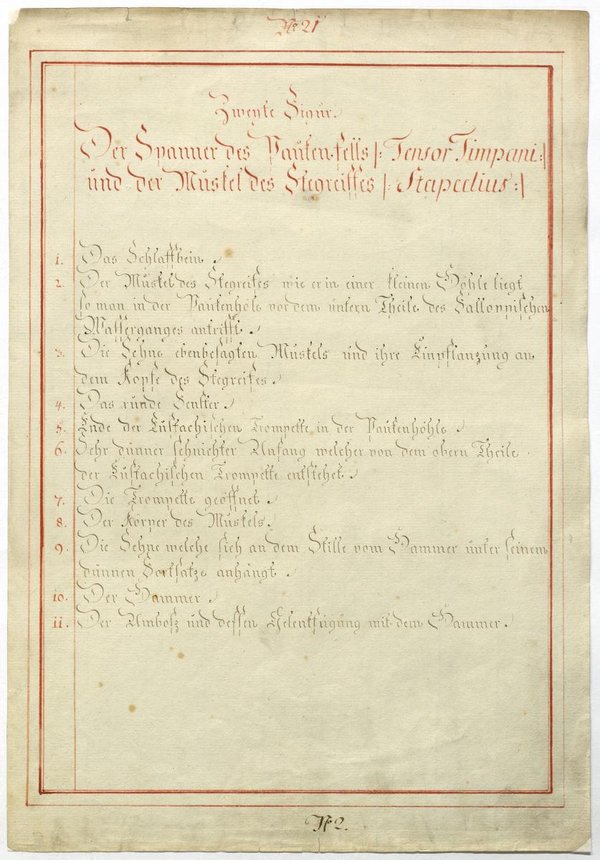 No 21
Zweyte Figur.
Der Spanner des Paukenfells /: Tensor Timpani :/
und der Muskel des Stegreiffes /: Stapedius :/
1. Das Schlaffbein.
2. Der Muskel des Stegreifes wie er in einer kleinen Höhle liegt
so man in der Paukenhöle vor dem untern Theile des Falloppischen
Wasserganges antrifft.
3. Die Sehne ebenbesagten Muskels und ihre Einpflanzung an
dem Kopfe des Stegreifes.
4. Das runde Fenster.
5. Ende der Eustachischen Trompette in der Paukenhöhle.
6. Sehr dünner sehnichter Anfang welcher von dem obern Theile
der Eustachischen Trompette entstehet.
7. Die Trompette geöffnet.
8. Der Körper des Muskels.
9. Die Sehne welche sich an dem Stille vom Hammer unter seinem
dünnen Fortsatze anhängt.
10. Der Hammer.
11. Der Ambosz und dessen Gelenkfügung mit dem Hammer.
No 2.